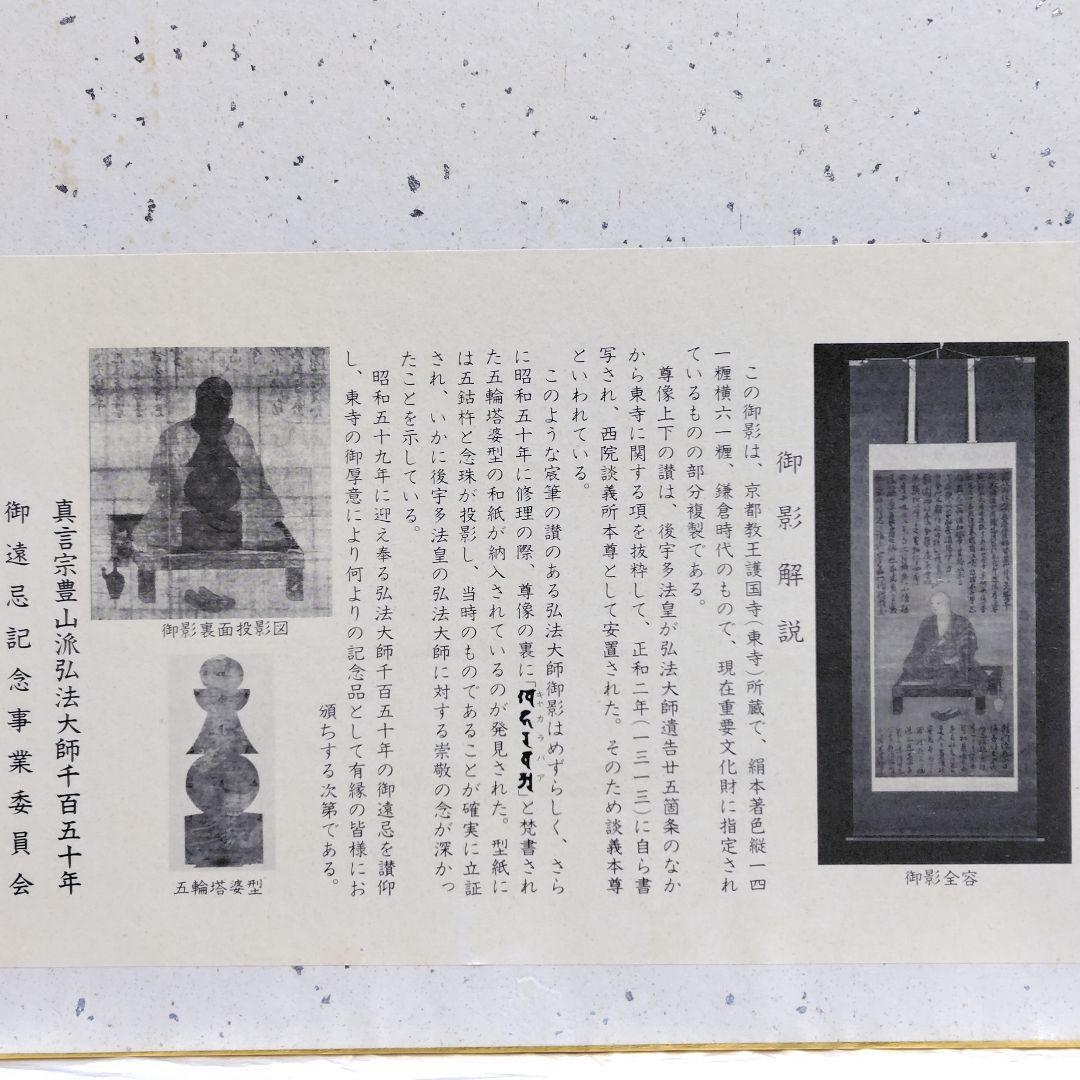 御影解説
この御影は、京都教王護国寺(東寺)所蔵で、絹本著色縦一四
一糎横六一糎、鎌倉時代のもので、現在重要文化財に指定され
ているものの部分複製である。
尊像上下の讃は、後宇多法皇が弘法大師遺告廿五箇条のなか
から東寺に関する項を抜粋して、正和二年(一三一三)に自ら書
写され、西院談義所本尊として安置された。そのため談義本尊
といわれている。
このような宸筆の讃のある弘法大師御影はめずらしく、さら
に昭和五十年に修理の際、尊像の裏に「
キャカラバア
」と梵書され
た五輪塔婆型の和紙が納入されているのが発見された。型紙に
は五鈷杵と念珠が投影し、当時のものであることが確実に立証
され、いかに後宇多法皇の弘法大師に対する崇敬の念が深かっ
たことを示している。
昭和五十九年に迎え奉る弘法大師千百五十年の御遠忌を讃仰
し、東寺の御厚意により何よりの記念品として有縁の皆様にお
頒ちする次第である。
真言宗豊山派弘法大師千百五十年
御遠忌記念事業委員会
御影全容
御影裏面投影図
五輪塔婆型